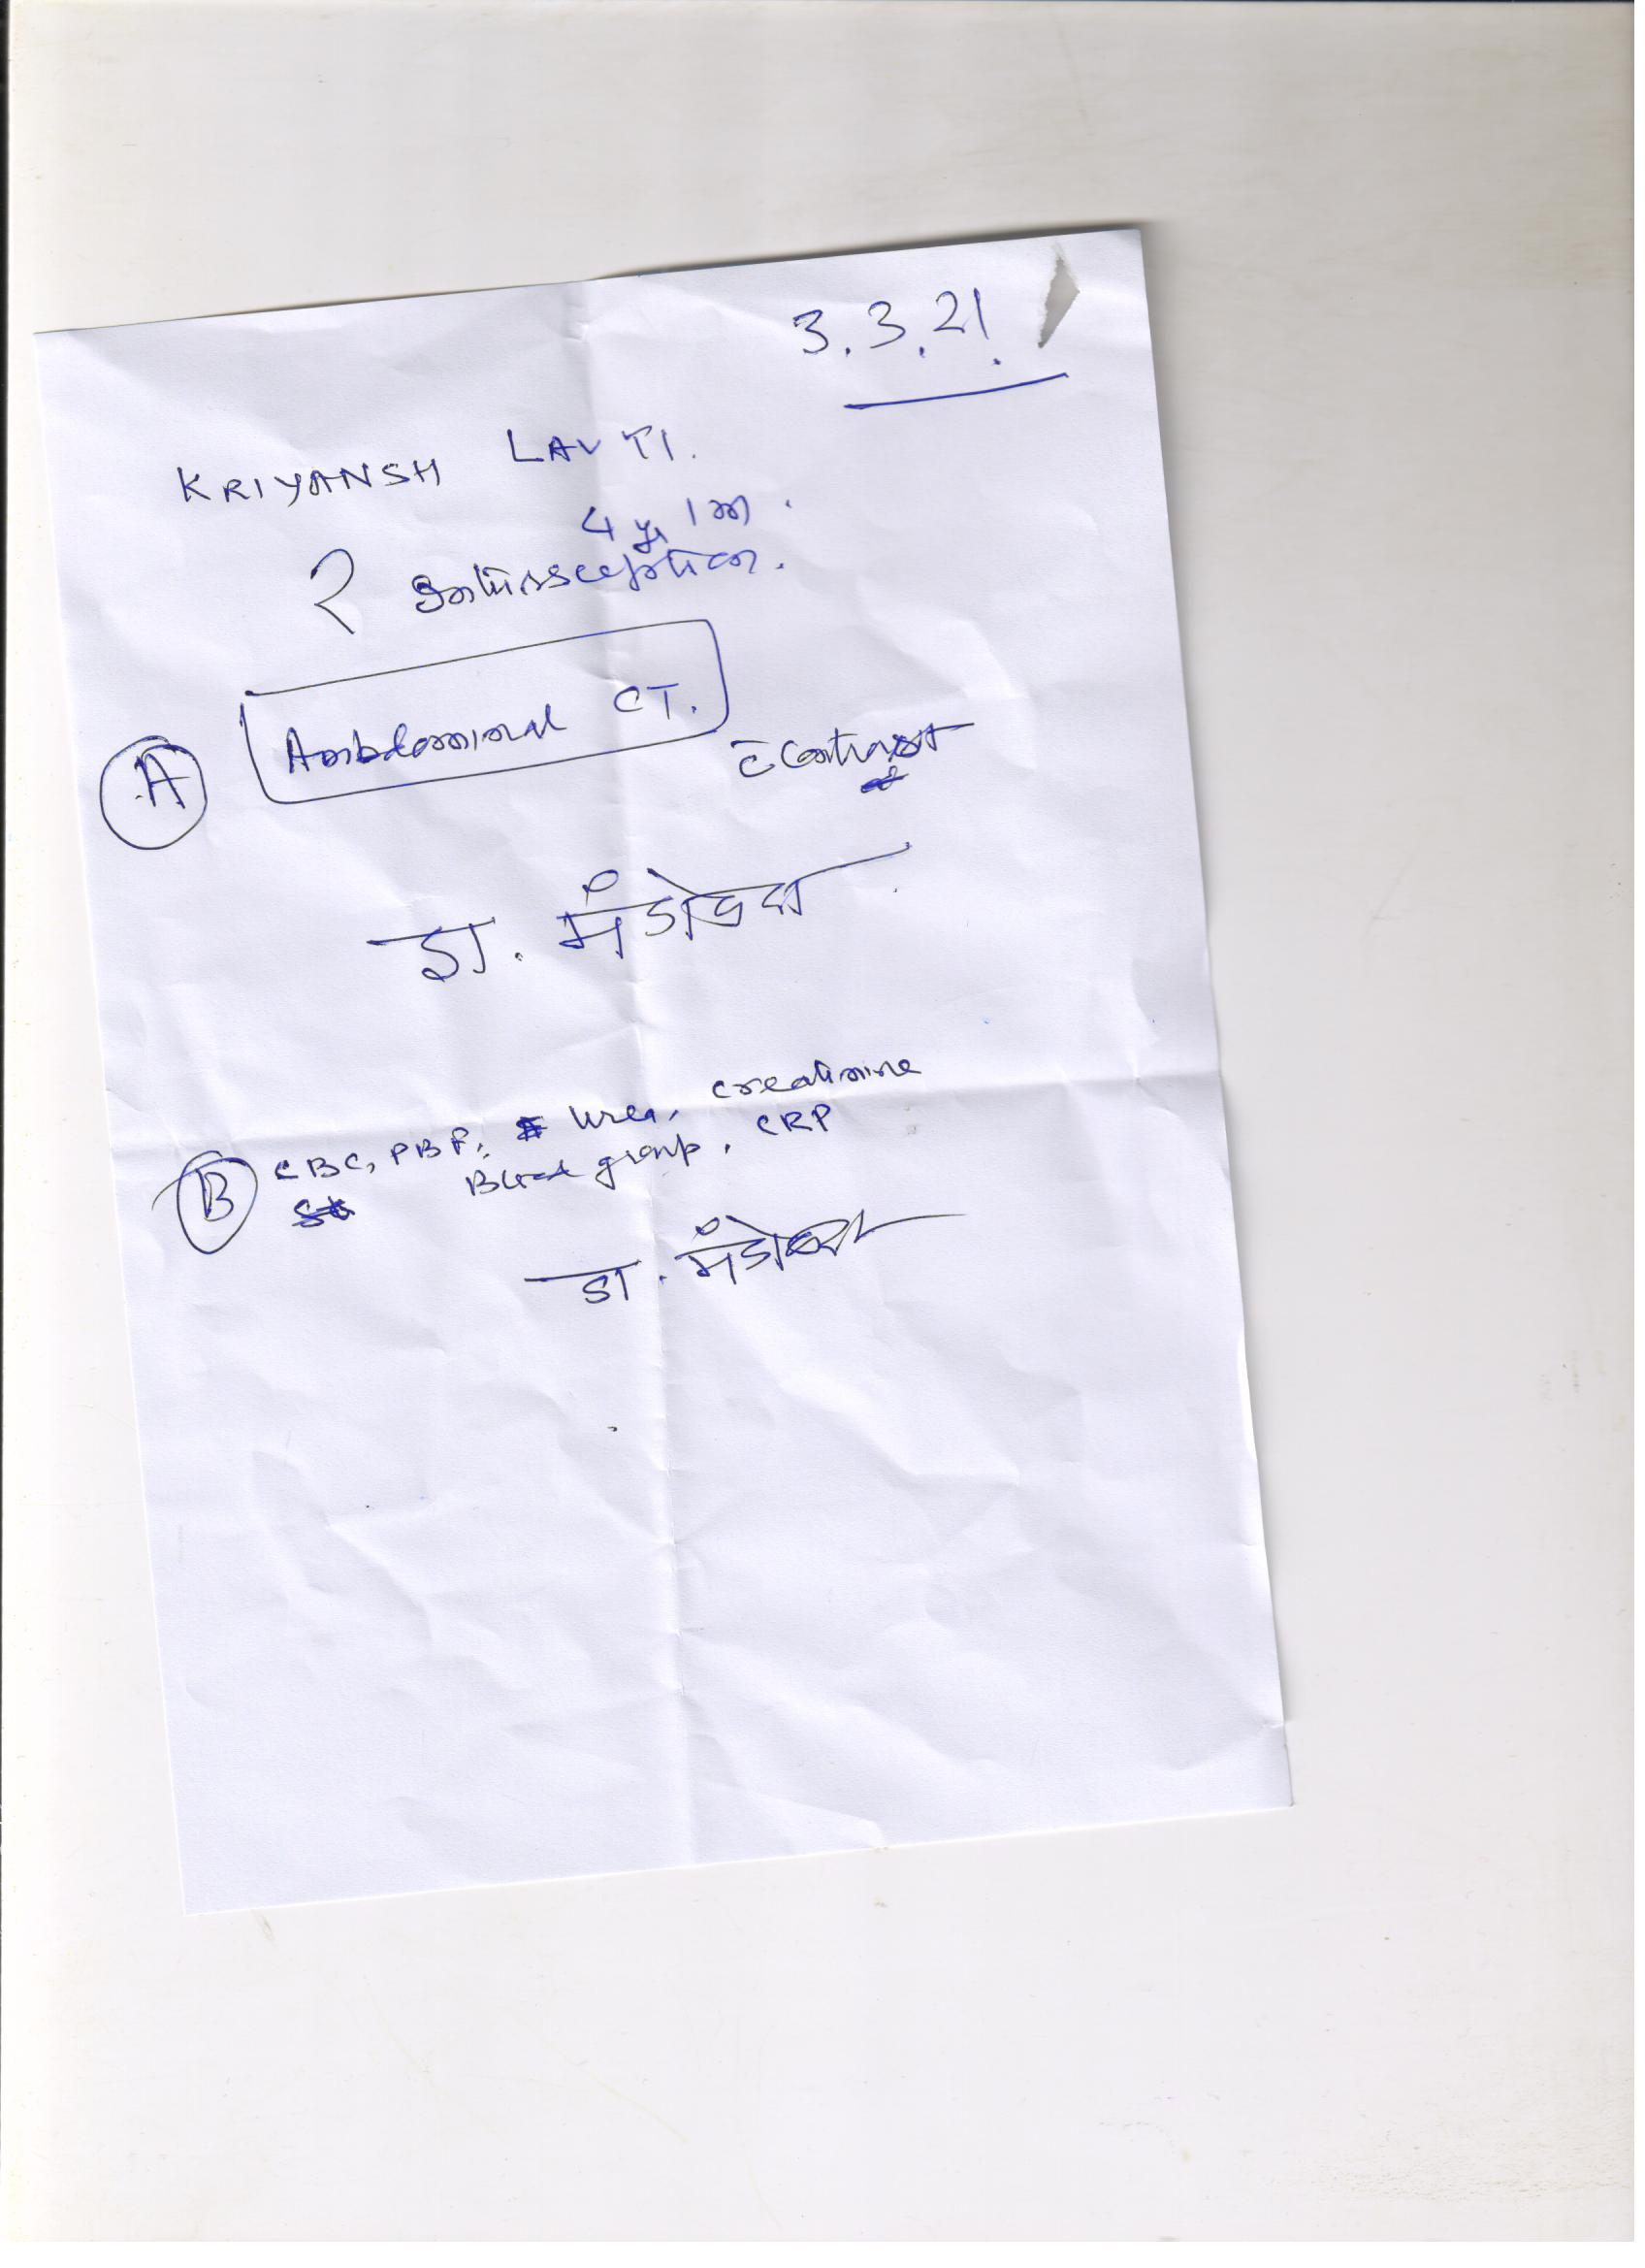 3.3.21.
KRIYANSH LAVTI.
4 yr 1 m.
? Intussception.
A Ambdominal CT. c̄ Contrast
डा. मंडोवरा
B CBC, PBF, Urea, creatinine
Blood group, CRP
डा. मंडोवरा